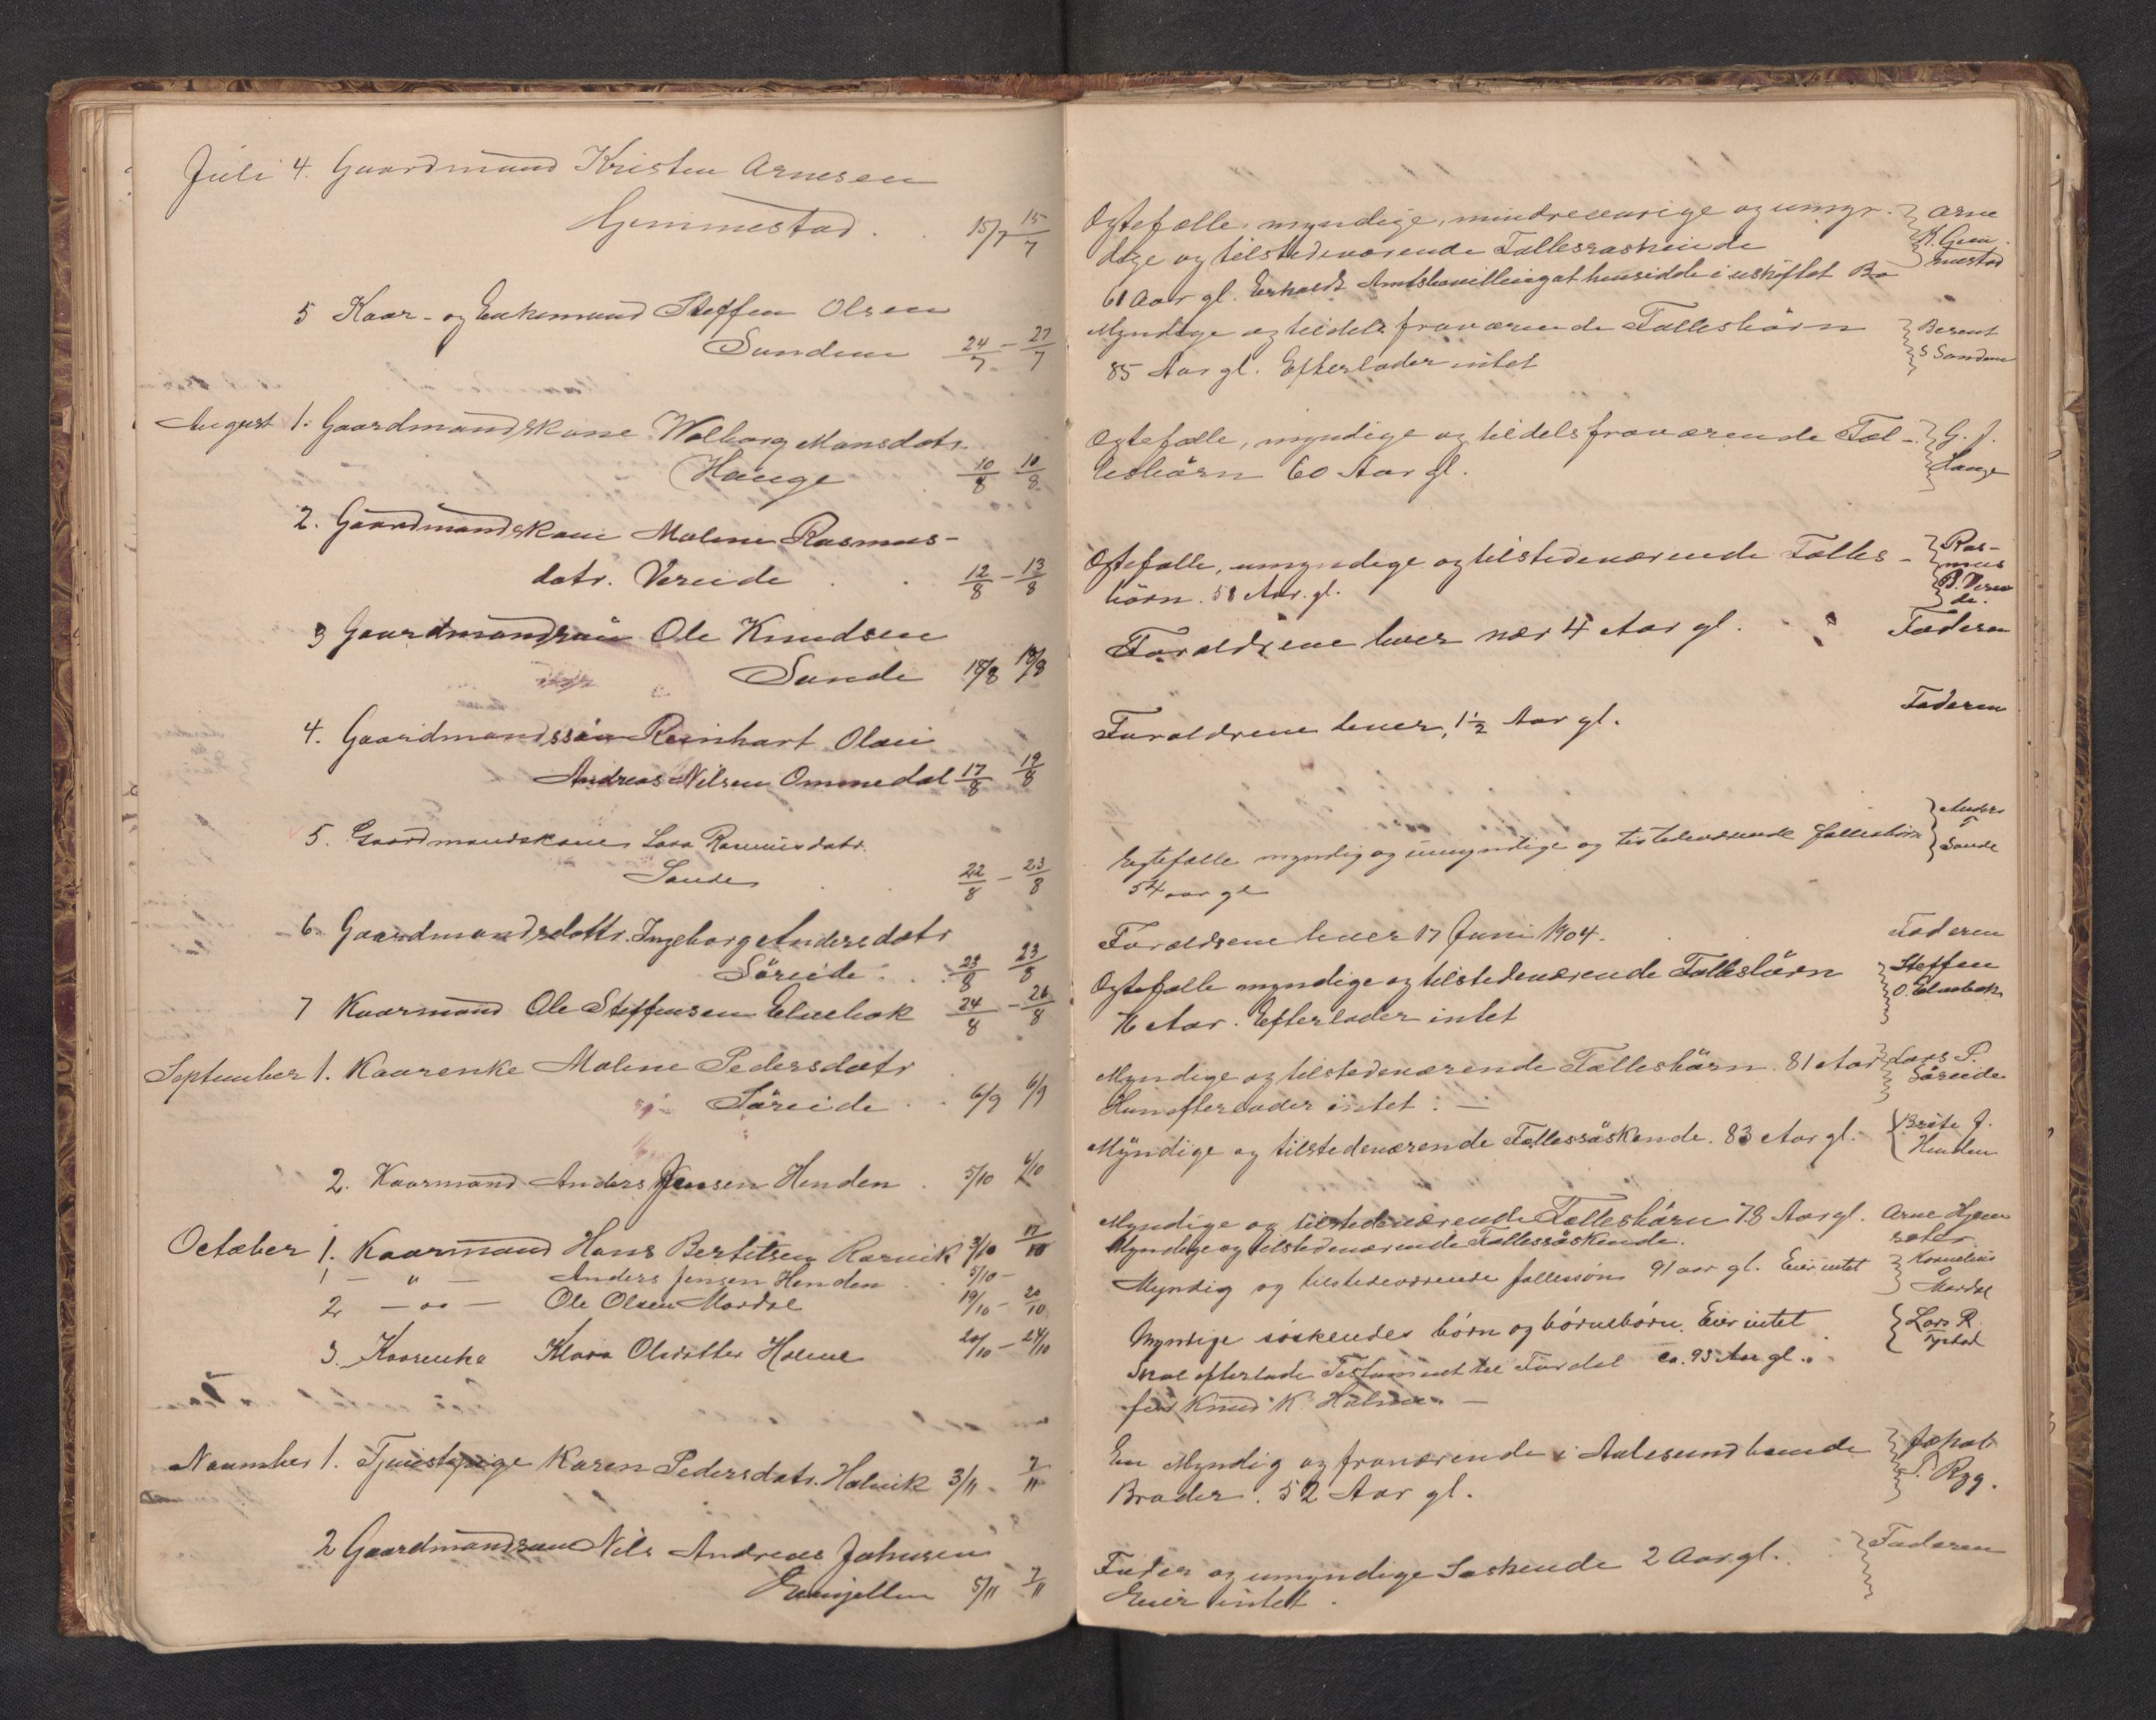 Juli 4. Gaardmand Kristen Arnesen
Gjemmestad . . 15/7 15/7
5 Kaar- og Enkemand Steffen Olsen
Sandene 24/7 - 27/7
August 1. Gaardmandskone Walborg Monsdatr.
Hauge . 10/8 10/8
2. Gaardmandskone Malene Rasmus-
datr. Vereide . . 12/8 - 13/8
3 Gaardmandssön Ole Knudsen
Sande 18/8 18/8
4. Gaardmandssön Reinhart Olai
Andreas Nilsen Ommedal 17/8 19/8
5. Gaardmandskone Lava Rasmusdatr.
Sande 22/8 - 23/8
6. Gaardmandsdattr. Ingeborg Andersdatr
Söreide . . 23/8 23/8
7 Kaarmand Ole Steffensen Elvebak 24/8 - 26/8
September 1. Kaarenke Malene Pedersdatr
Söreide . . 6/9 6/9
2. Kaarmand Anders Jensen Henden . 5/10 6/10
October 1. Kaarmand Hans Bertitsen 3/10 17/10
1 — " — Anders Jensen Henden . . 5/10 -
2 — " — Ole Olsen Mardal 19/10 - 20/10
3. Kaarenke Klara Olsdatter Holme 20/10 - 24/10
November 1. Tjenestepige Karen Pedersdatr. Holvik 3/11 - 7/11
2 Gaardmandssön Nils Andreas Johnsen
5/11 7/11
Ægtefælle, myndige, mindreaarige og umyn-
dige og tilstedeværende Fællessöskende
61 Aar gl. Erholdt Amtsbevilling at hensidde i uskiftet Bo
Arne
K. Gem-
mestad
Myndige og tildels fraværende Fællesbörn
85 Aar gl. Efterlader intet
Berent
S Sandene
Ægtefælle, myndige og tildels fraværende Fæl-
lesbörn 60 Aar gl.
G. J.
Hauge
Ægtefælle, umyndige og tilstedeværende Fælles-
börn. 58 Aar. gl.
Ras-
mus
B. Verei-
de.
Forældrene lever nær 4 Aar gl. Faderen
Forældrene lever, 1½ Aar gl. Faderen
Egtefælle myndig og umyndige og tilstedeværende fællesbörn
54 aar gl
Anders
T
Sande
Forældrene lever 17 Juni 1904. Faderen
Ægtefælle myndige og tilstedeværende Fællesbörn
76 Aar. Efterlader intet
Steffen
O. Elvebak
Myndige og tilstedeværende Fællesbörn. 81 Aar
Hun efterlader intet. —
Lars P.
Söreide
Myndige og tilstedeværende Fællessöskende. 83 Aar gl.
Brite J.
Henden
Myndige og tilstedeværende Fællesbörn 78 Aar gl. Arne Hjem
sæter
Myndige og tilstedeværende Fællessöskende.
Myndig og tilstedeværende fællessön 91 aar gl. Eier intet
Kornelius
Mardal
Myndige söskendes börn og börnebörn. Eier intet
Skal efterlade Testament til Fordel ca. 93 Aar gl.
for Knud K. Holme. —
Lars R.
En Myndig og fraværende i Aalesund boende
Broder. 52 Aar gl.
Jakob
P. Ryg.
Fader og umyndige Söskende 2 Aar gl.
Eier intet.
Faderen